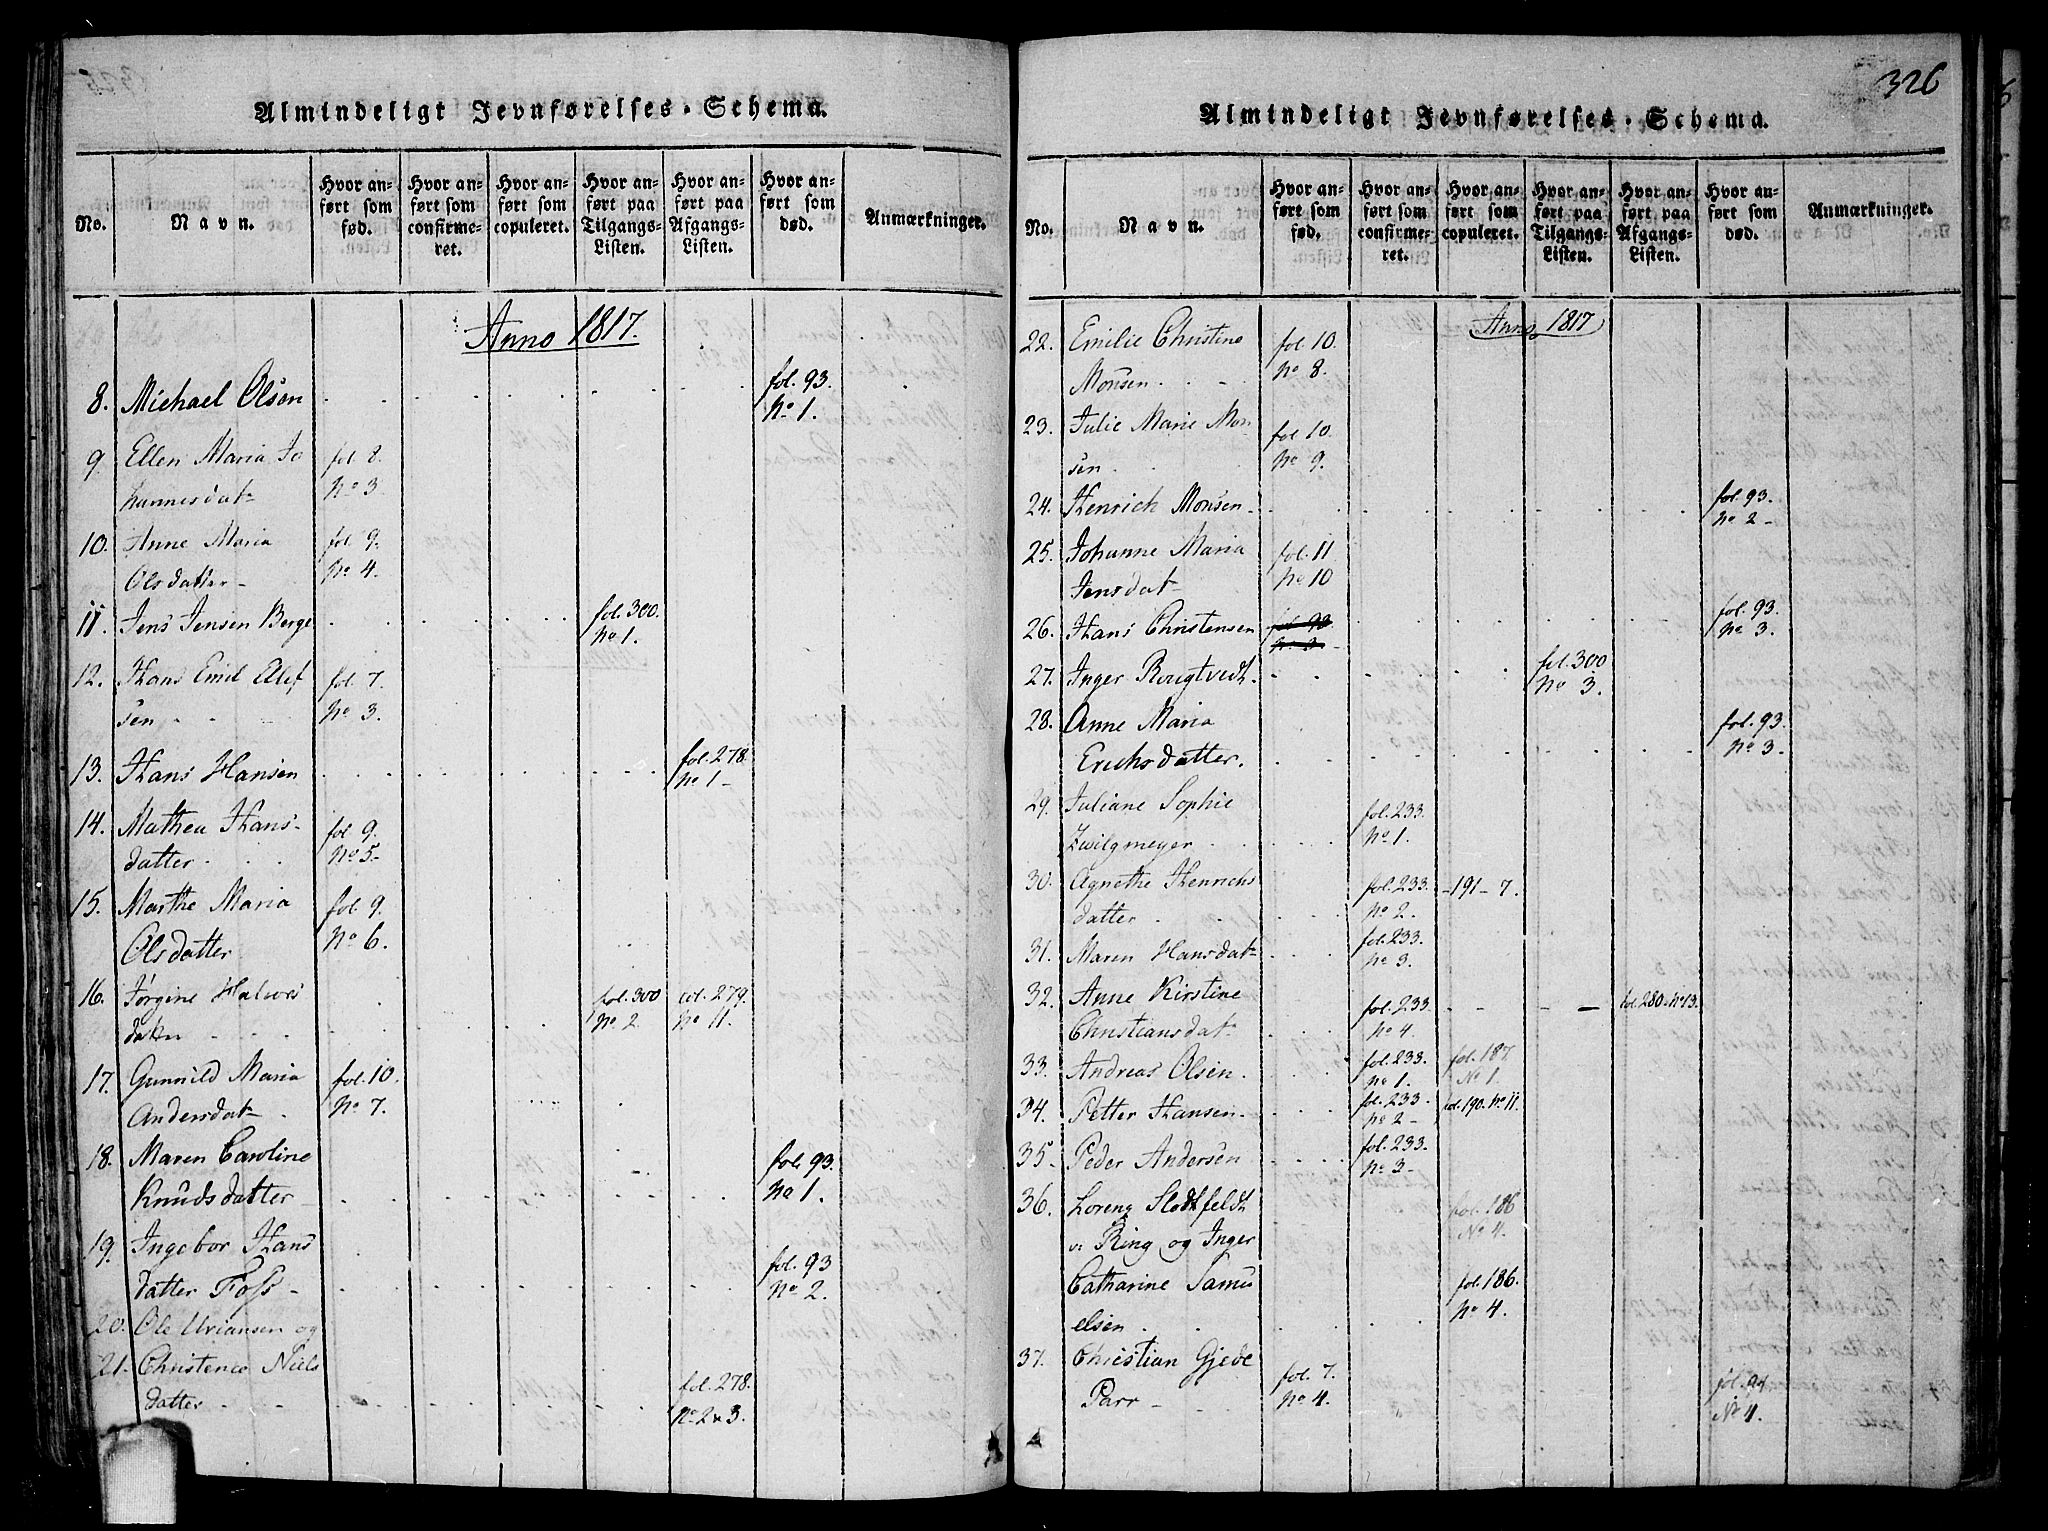 Almindeligt Jevnførelses-Schema.
No.
Navn.
Hvor an-
ført som
fød.
Hvor an-
ført som
confirme-
ret.
Hvor an-
ført som
copuleret.
Hvor an-
ført paa
Tilgangs-
Listen.
Hvor an-
ført paa
Afgangs-
Listen.
Hvor an-
ført som
død.
Anmærkninger.
Anno 1817.
8. Michael Olsen fol. 93.
No 1.
9. Ellen Maria Jo fol. 8.
hannesdat No 3
10. Anne Maria fol. 9.
Olsdatter No 4.
11. Jens Jensen Berge fol. 300.
No 1.
12. Hans Emil Elef fol. 7.
sen No 3.
13. Hans Hansen fol. 278.
No 1
14. Mathea Hans- fol 9.
datter No 5
15. Marthe Maria fol. 9.
Olsdatter No 6.
16. Jørgine Halvors fol. 300 fol. 279.
datter No 2 No 11.
17. Gunnild Maria fol. 10.
Andersdat No 7.
18. Maren Caroline fol. 93.
Knudsdatter No 1.
19. Ingebor Hans
datter Foss fol. 93
No 2.
20. Ole Uriansen og
21. Christence Niels
datter fol. 278.
No 2 & 3.
326
Almindeligt Jevnførelses-Schema.
No.
Navn.
Hvor an-
ført som
fød.
Hvor an-
ført som
confirme-
ret.
Hvor an-
ført som
copuleret.
Hvor an-
ført paa
Tilgangs-
Listen.
Hvor an-
ført paa
Afgangs-
Listen.
Hvor an-
ført som
død.
Anmærkninger.
Anno 1817
22. Emilie Christine fol. 10.
Monsen No 8.
23. Julie Marie Mon fol 10.
sen No 9.
24. Henrich Monsen fol. 93.
No 2
25. Johanne Maria fol. 11
Jensdat No 10
26. Hans Christensen fol 93 fol. 93.
No 3 No 3.
27. Inger Rougtvedt fol. 300
No 3.
28. Anne Maria fol. 93.
Erichsdatter. No 3.
29. Juliane Sophie fol. 233.
Zwilgmeyer No 1.
30. Agnethe Henrichs fol. 233. 191 - 7.
datter No 2.
31. Maren Hansdat fol. 233.
No 3.
32. Anne Kirstine fol. 233. fol. 280 No 13.
Christiansdat No 4
33. Andreas Olsen fol. 233. fol. 187.
No 1. No 1.
34. Petter Hansen fol. 233 fol. 190. No 11.
No 2
35. Peder Andersen fol. 233.
No 3
36. Lorenz Slodtfeldt fol. 186
Ring og Inger No 4.
Catharine Samu fol. 186.
elsen No 4.
37. Christian Gjede fol. 7. fol. 94
Parr No 4. No 4.